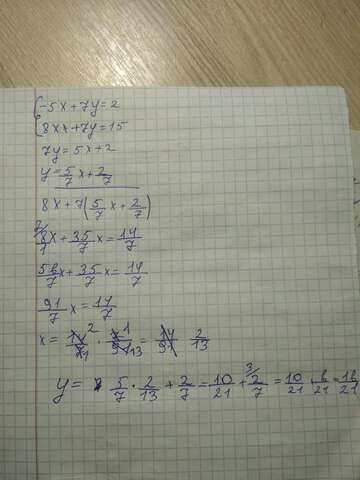 -5x+7y=2
8x+7y=15
7y=5x+2
y=5/7x+2/7
8x+7(5/7x+2/7)
8/1x+35/7x=14/7
56/7x+35/7x=14/7
91/7x=14/7
x=14/7·7/91=14/91 2/13
y=5/7·2/13+2/7=10/21+2/7=10/21 6/21=16/21